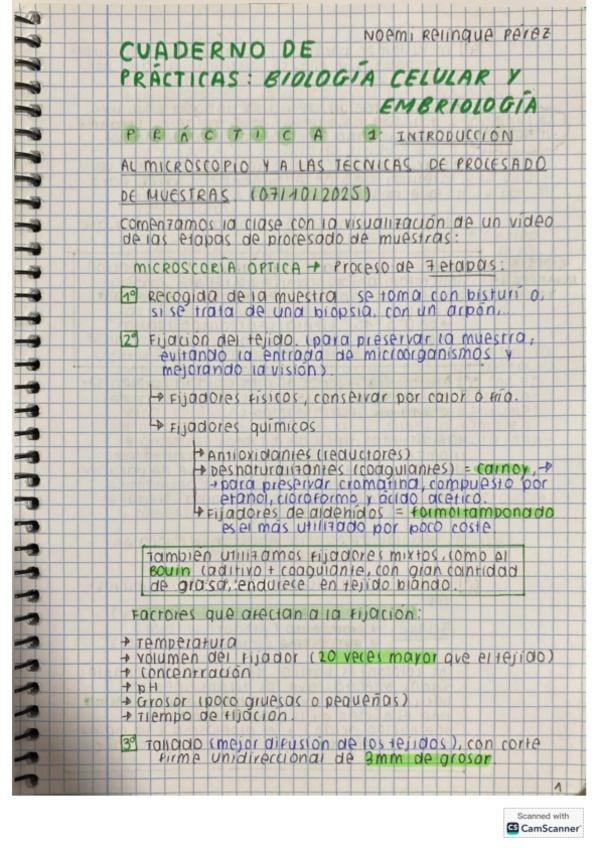 Noemí Relinque Pérez
CUADERNO DE
PRÁCTICAS: BIOLOGÍA CELULAR Y
EMBRIOLOGÍA
PRÁCTICA 1: INTRODUCCIÓN
AL MICROSCOPIO Y A LAS TECNICAS DE PROCESADO
DE MUESTRAS (07/10/2025)
Comenzamos la clase con la visualización de un vídeo
de las etapas de procesado de muestras:
MICROSCORÍA ÓPTICA → Proceso de 7 etapas:
1º Recogida de la muestra se toma con bisturí o,
si se trata de una biopsia, con un arpón,...
2º Fijación del tejido. (para preservar la muestra,
evitando la entrada de microorganismos y
mejorando la visión).
→ Fijadores físicos, conservar por calor o frío.
→ Fijadores químicos
→ Antioxidantes (reductores)
→ Desnaturalizantes (coagulantes) = carnoy, →
→ para preservar cromatina, compuesto por
etanol, cloroformo y ácido acético.
→ Fijadores de aldehidos = formol tamponado
es el más utilizado por poco coste.
También utilizamos fijadores mixtos, como el
Bouin (aditivo + coagulante, con gran cantidad
de grasa, endurece en tejido blando.
Factores que afectan a la fijación:
→ Temperatura
→ Volumen del fijador (20 veces mayor que el tejido)
→ Concentración
→ pH
→ Grosor (poco gruesas o pequeñas)
→ Tiempo de fijación.
3º Tallado (mejor difusión de los tejidos), con corte
firme unidireccional de 3mm de grosor.
1
Scanned with
CS CamScanner